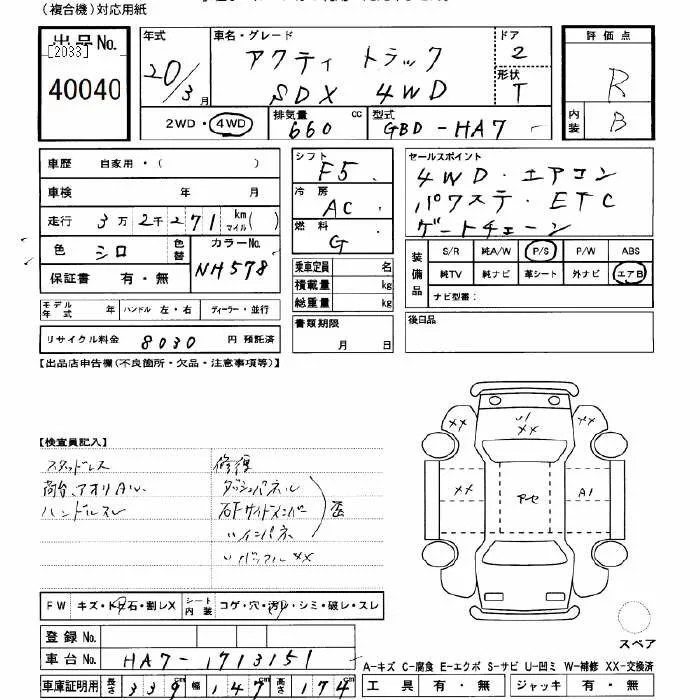 （複合機）対応用紙
出品No.
[2033]
40040
年式
20/3月
車名・グレード
アクティ トラック
SDX 4WD
ドア
2
形状
T
2WD・4WD
排気量
660 cc
型式
GBD-HA7
評価点
R
内装
B
車歴 自家用・( )
車検 年 月
走行 3万2千271 km マイル( )
色 シロ
色替
カラーNo.
NH578
保証書 有・無
シフト
F5
冷房
AC
燃料
G
乗車定員 名
積載量 kg
総重量 kg
書類期限
月 日
セールスポイント
4WD・エアコン
パワステ・ETC
ゲートチェーン
装備品
S/R 純A/W P/S P/W ABS
純TV 純ナビ 革シート 外ナビ エアB
ナビ型番：
後日品
モデル年式 年 ハンドル 左・右 ディーラー・並行
リサイクル料金 8030 円 預託済
【出品店申告欄(不良箇所・欠品・注意事項等)】
【検査員記入】
スタッドレス
荷台、アオリAU
ハンドルスレ
修復
ダッシュパネル
右Fサイドメンバー
〃インパネ
歪
〃バッフルXX
U1
XX
XX
XX
XX
アーセ
A1
スペア
FW キズ・トビ石・割レX
シート内装 コゲ・穴・汚レ・シミ・破レ・スレ
登録No.
車台No. HA7-1713151
車庫証明用 長さ 339 幅 147 高さ 174
A-キズ C-腐食 E-エクボ S-サビ U-凹ミ W-補修 XX-交換済
工具 有・無 ジャッキ 有・無